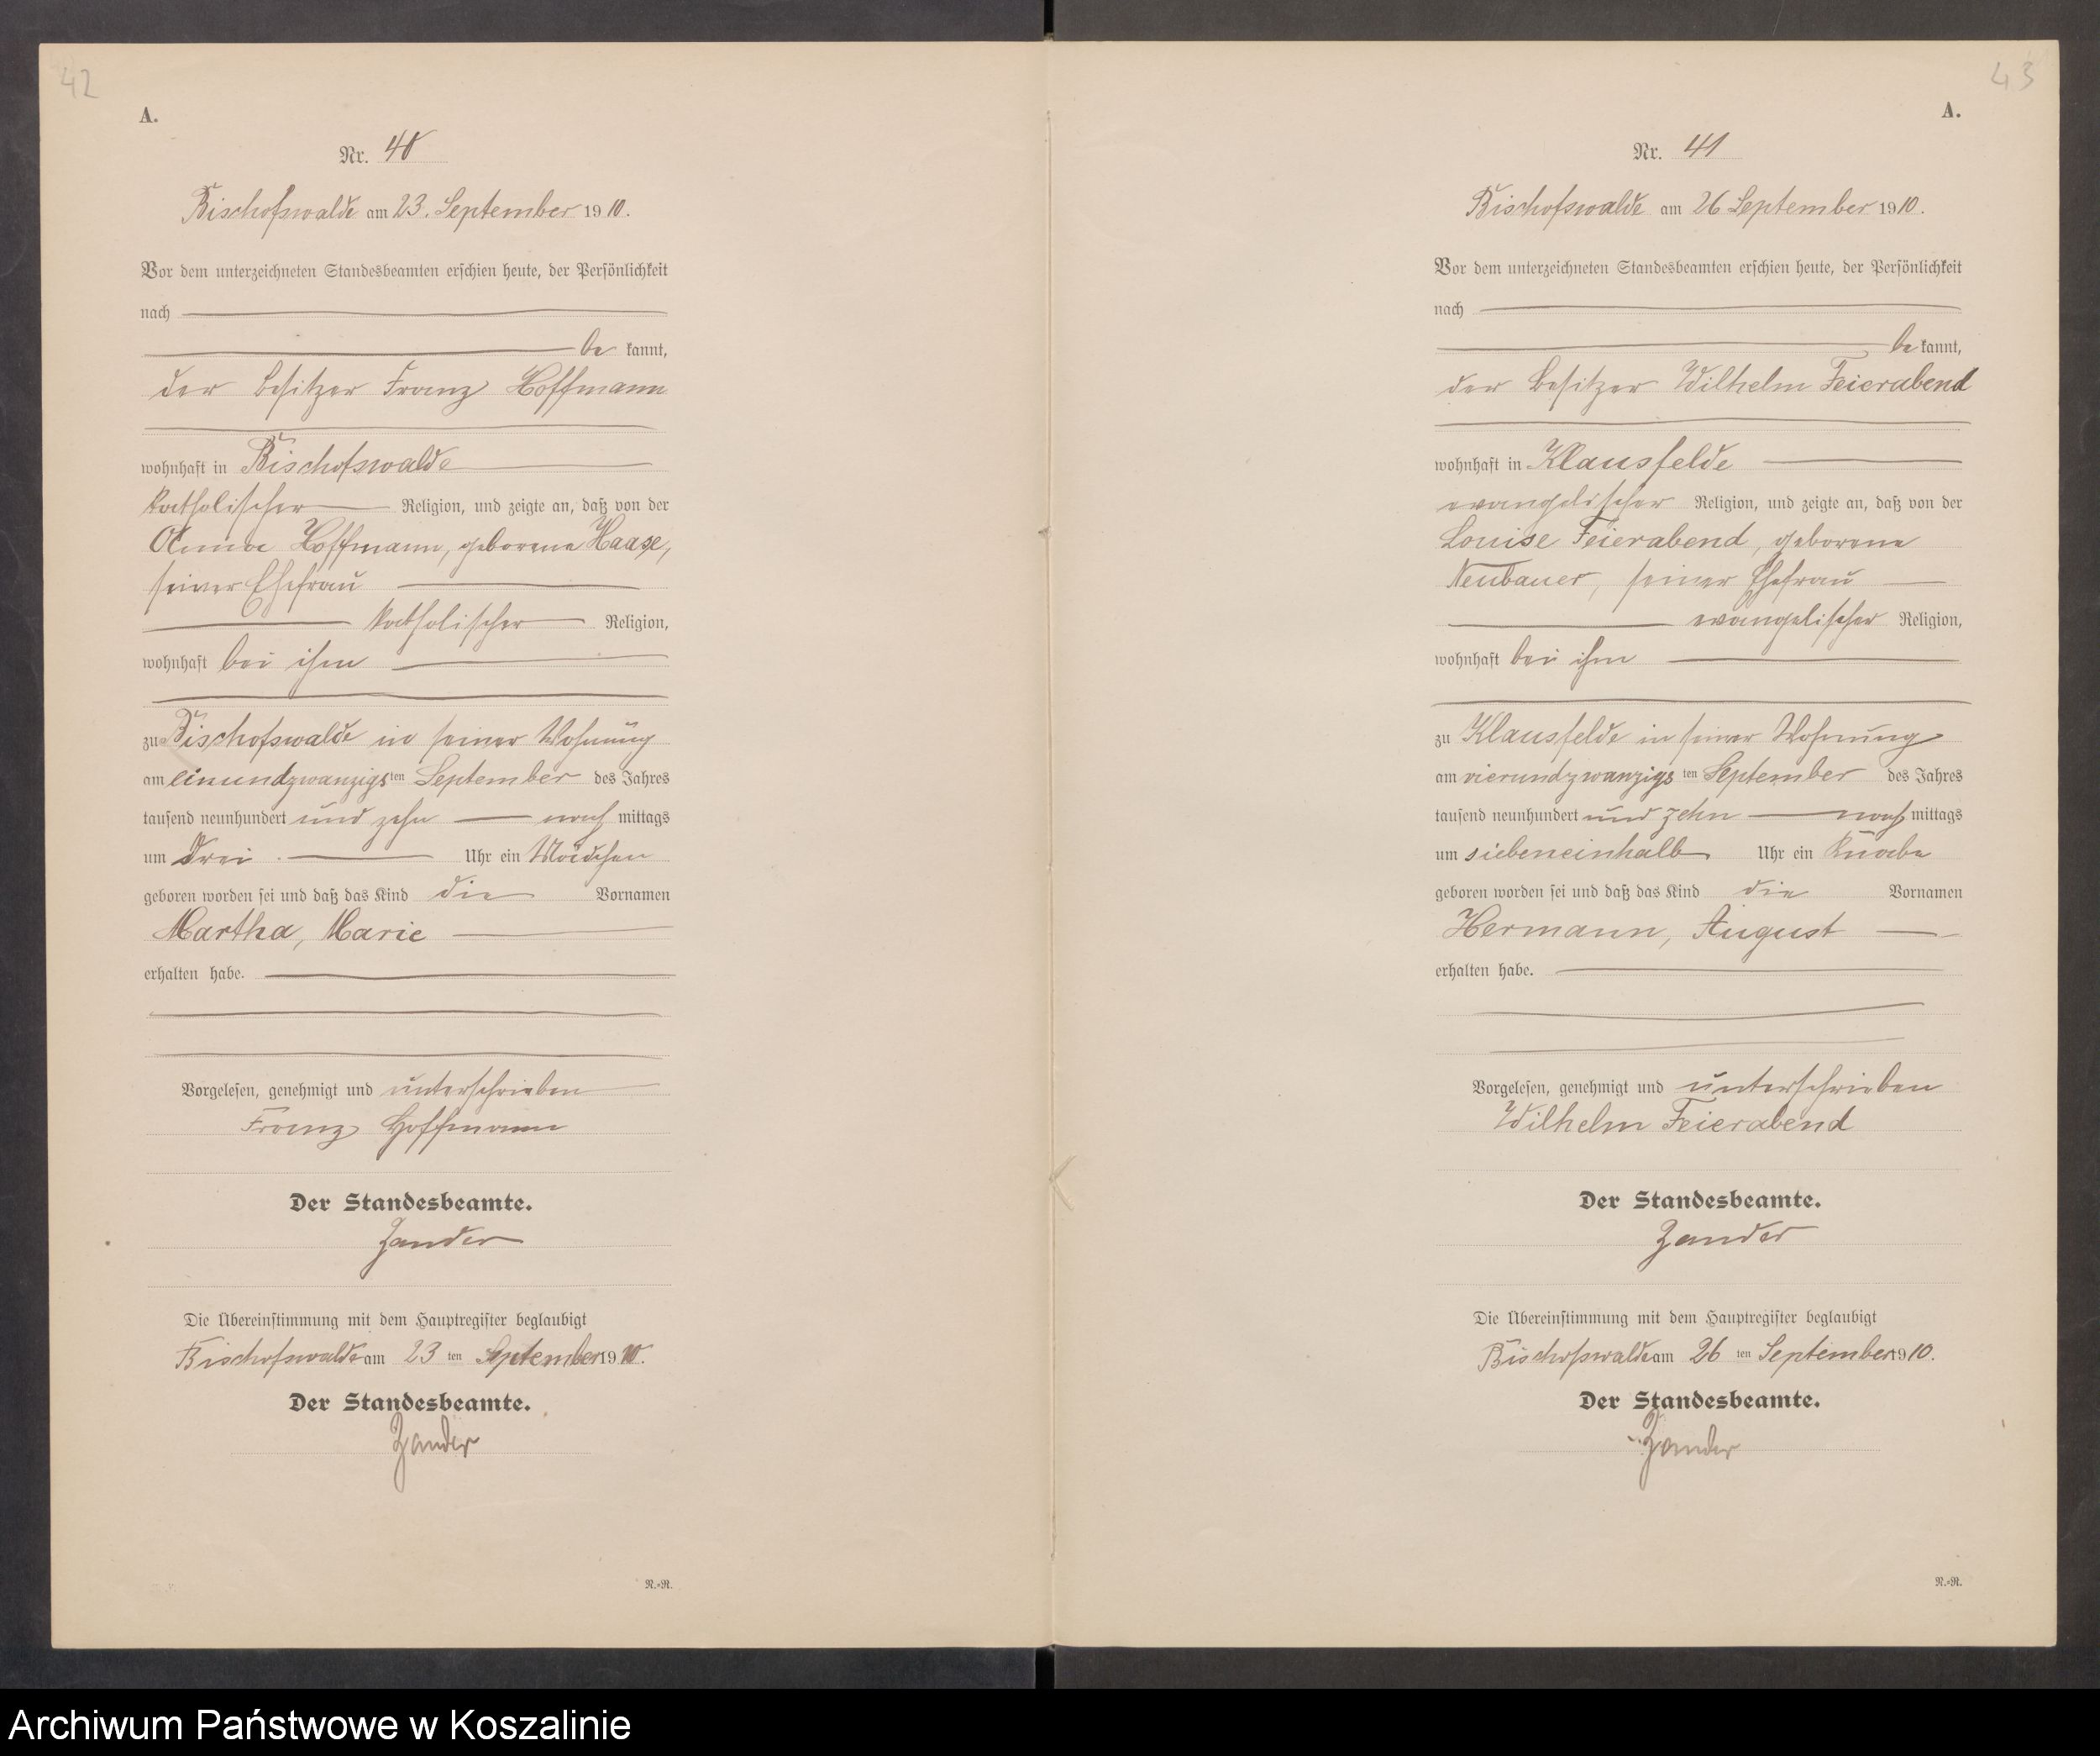 42
A.
Nr. 40
Bischofswalde am 23. September 1910.
Vor dem unterzeichneten Standesbeamten erschien heute, der Persönlichkeit
nach
be kannt,
der Besitzer Franz Hoffmann
wohnhaft in Bischofswalde
katholischer Religion, und zeigte an, daß von der
Anna Hoffmann, geborene Haase,
seiner Ehefrau
katholischer Religion,
wohnhaft bei ihm
zu Bischofswalde in seiner Wohnung
am einundzwanzigsten September des Jahres
tausend neunhundert und zehn nach mittags
um drei Uhr ein Mädchen
geboren worden sei und daß das Kind die Vornamen
Martha, Marie
erhalten habe.
Vorgelesen, genehmigt und unterschrieben
Franz Hoffmann
Der Standesbeamte.
Zander
Die Übereinstimmung mit dem Hauptregister beglaubigt
Bischofswalde am 23 ten September 1910.
Der Standesbeamte.
Zander
N.=R.
43
A.
Nr. 41
Bischofswalde am 26 September 1910.
Vor dem unterzeichneten Standesbeamten erschien heute, der Persönlichkeit
nach
be kannt,
der Besitzer Wilhelm Feierabend
wohnhaft in Klausfelde
evangelischer Religion, und zeigte an, daß von der
Louise Feierabend, geborene
Neubauer, seiner Ehefrau
evangelischer Religion,
wohnhaft bei ihm
zu Klausfelde in seiner Wohnung
am vierundzwanzigsten September des Jahres
tausend neunhundert und zehn nach mittags
um siebeneinhalb Uhr ein Knabe
geboren worden sei und daß das Kind die Vornamen
Hermann, August
erhalten habe.
Vorgelesen, genehmigt und unterschrieben
Wilhelm Feierabend
Der Standesbeamte.
Zander
Die Übereinstimmung mit dem Hauptregister beglaubigt
Bischofswalde am 26 ten September 1910.
Der Standesbeamte.
Zander
N.=R.
Archiwum Państwowe w Koszalinie